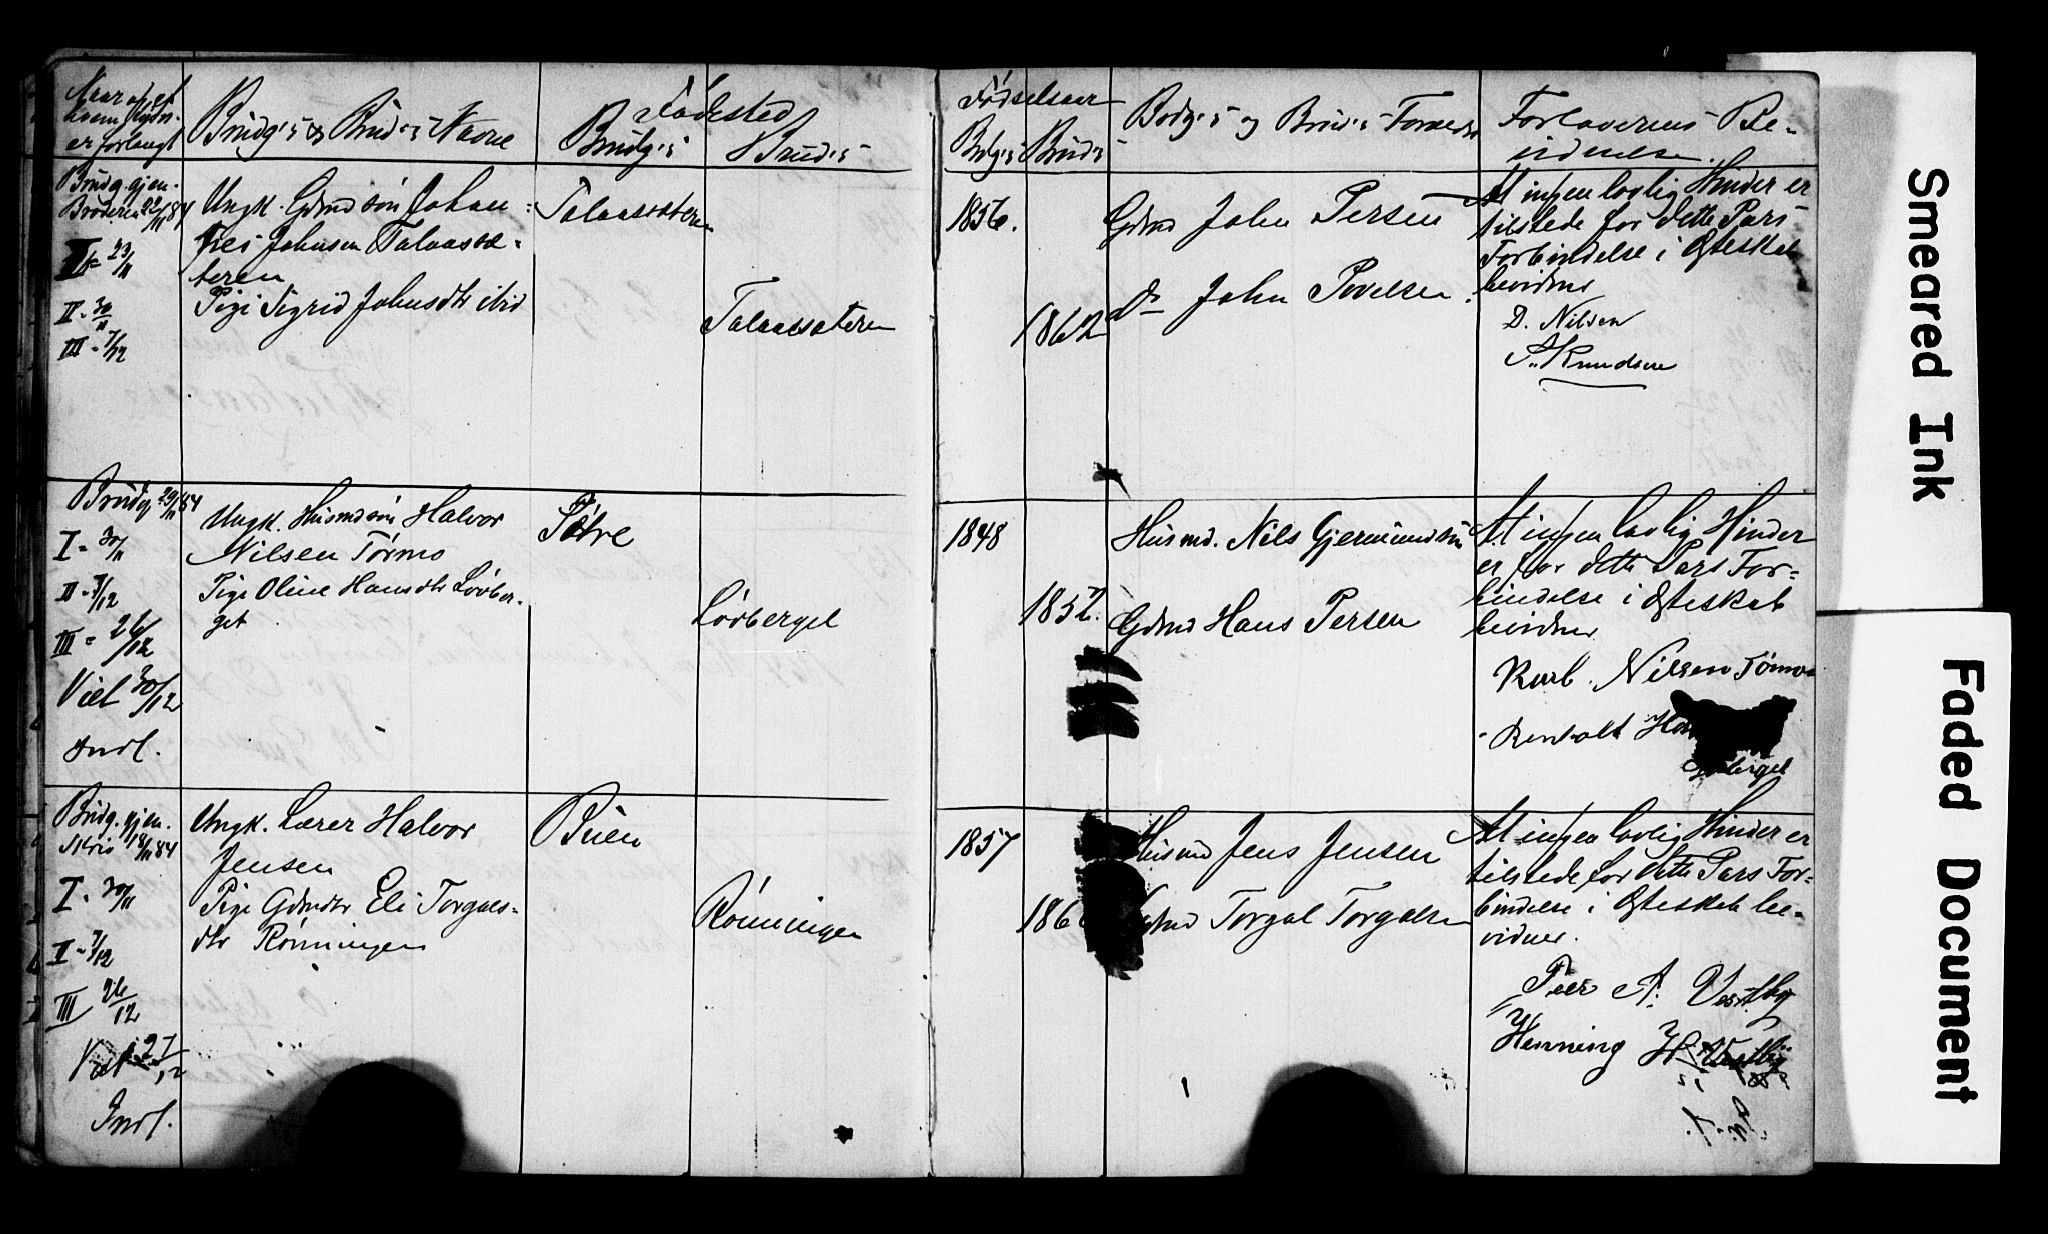 Naar og af
hvem Lysn.
er forlangt
Brudg's og Brud's Navne
Fødested
Brudg's
Brud's
Fødselsaar
Bdg's Brud's
Bdg's og Brud's Forældre
Forlovernes Be-
vidnelse.
Brudg. gjen.
Broderen 22/11 84
I = 23/11
II - 30/11
III - 7/12
Ungk. Gdmd søn Johan-
nes Johnsen Talaassæ-
teren
Pige Sigrid Johnsdtr ibid
Talaassæteren
Talaassæteren
1856.
1862
Gdmd John Persen
Do John Povelsen
At ingen lovlig Hinder er
tilstede for dette Pars
Forbindelse i Ægteskab
bevidner
D. Nilsen
Knudsen
Brudg 29/11 84
I = 30/11
II - 7/12
III = 26/12
Viet 30/12
Indf.
Ungk. Husmdsøn Halvor
Nilsen Tørmo
Pige Oline Hansdtr Løvber-
get
Sætre
Løvberget
1848
1852.
Husmd. Nils Gjermundsen
Gdmd Hans Persen
At ingen lovlig Hinder
er for dette Pars For-
bindelse i Ægteskab
bevidner
Nilsen Tørmo
Brudg. gjen.
84
I - 30/11
II - 7/12
III 26/12
Viet 27/12
Indf.
Ungk. Lærer Halvor
Jensen
Pige Gdmdtr Eli Torgals-
dtr Rønningen
Buen
Rønningen
1857
186
Husmd Jens Jensen
Torgal Torgalsen
At ingen lovlig Hinder er
tilstede for dette Pars For-
bindelse i Ægteskab be-
vidner.
Peer A. Vestby
Henning H. Vestby
Smeared Ink
Faded Document